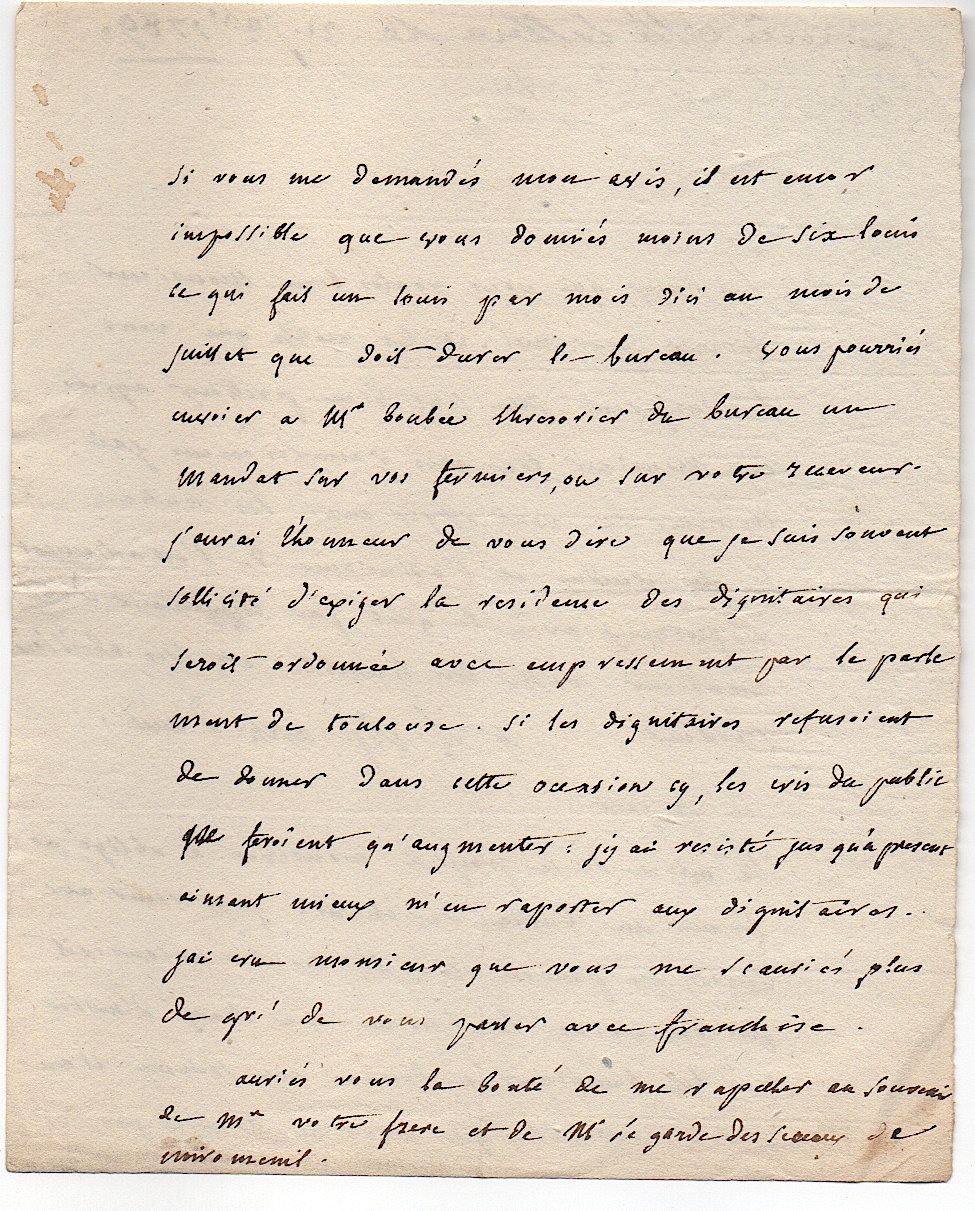 si vous me demandés mon avis, il est encor
impossible que vous donniés moins de six louis
ce qui fait un louis par mois dici au mois de
juillet que doit durer le bureau. vous pourriés
envoier a Mr boubée thresorier du bureau un
mandat sur vos fermiers, ou sur votre receveur.
j'aurai l'honneur de vous dire que je suis souvent
sollicité d'exiger la residence des dignitaires qui
seroit ordonnée avec empressement par le parle
ment de toulouse. si les dignitaires refusoient
de donner dans cette occasion cy, les cris du public
ne feroient qu'augmenter: j'y ai resisté jusqu'a present
aimant mieux m'en raporter aux dignitaires.
j'ai cru monsieur que vous me scauriés plus
de gré de vous parler avec franchise.
auriés vous la bonté de me rapeller au souvenir
de Mr votre frere et de Mr le garde des sceaux de
miromenil.